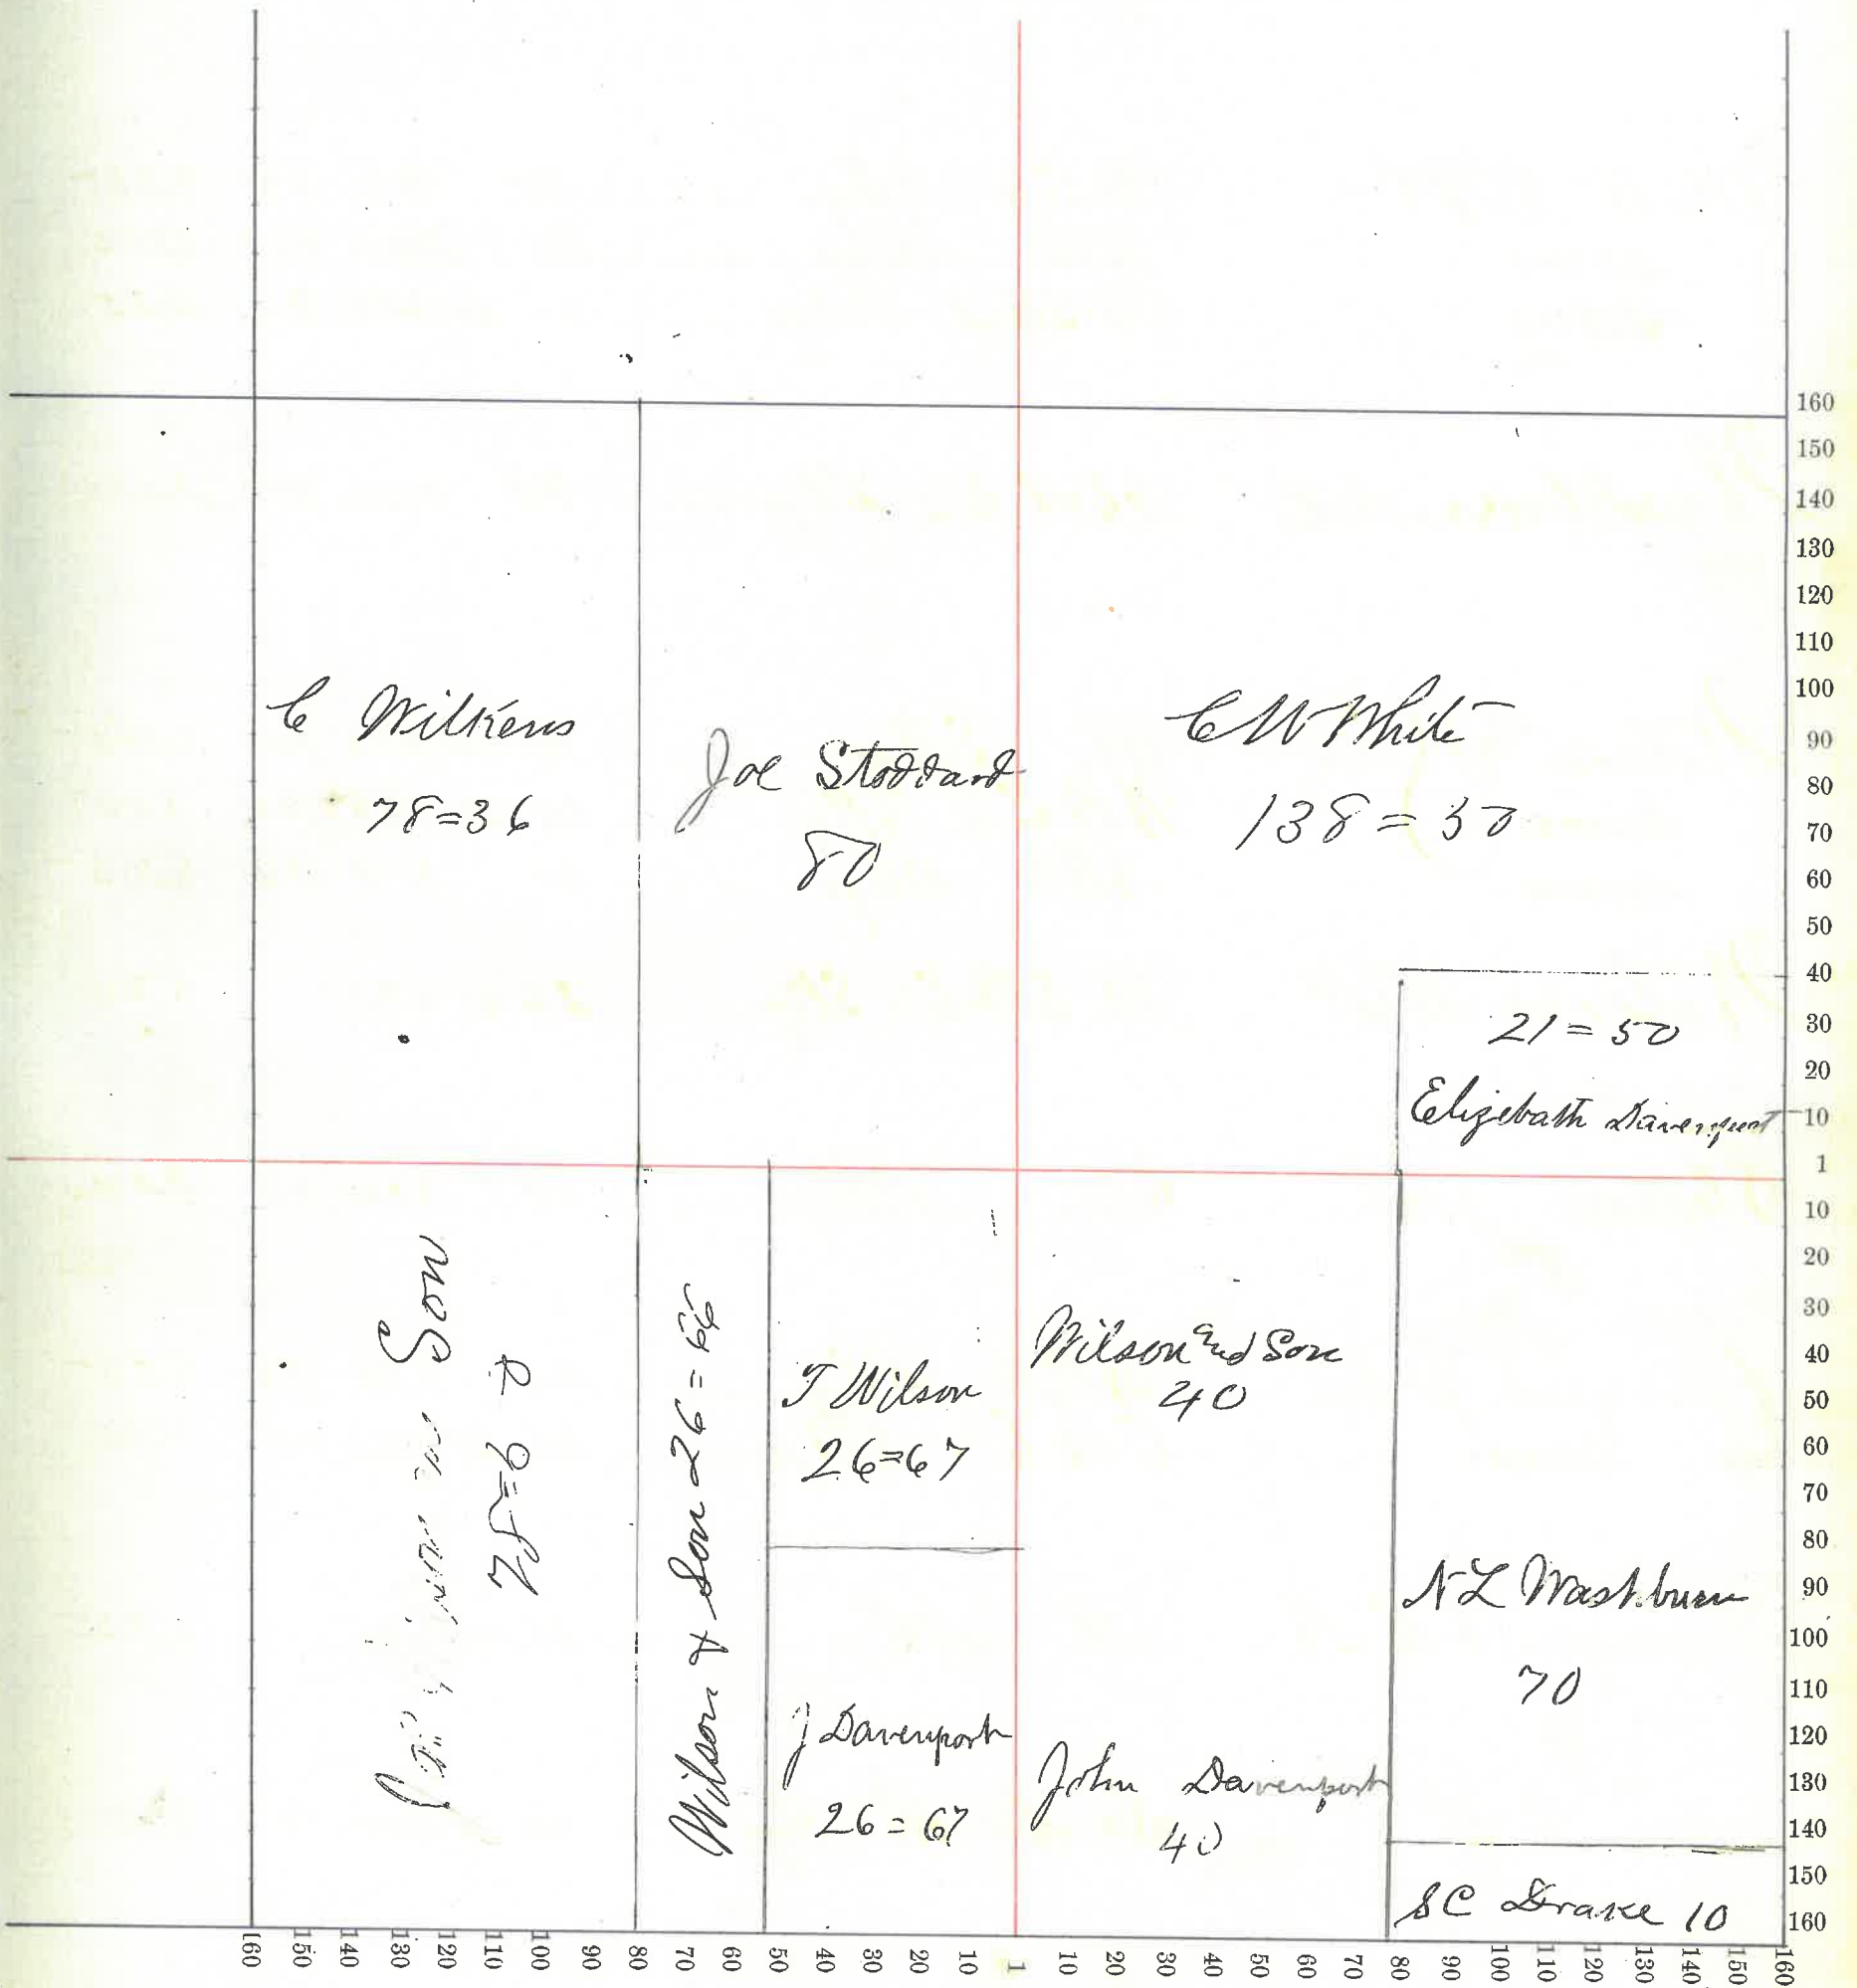 C Wilkens
78=36
Joe Stoddard
80
C W White
138=50
21=50
Elizebath Davenport
Son
78=6
Wilson & Son 26=66
T Wilson
26=67
J Davenport
26=67
Wilson and Son
40
John Davenport
40
N L Washburn
70
S C Drake 10
160
150
140
130
120
110
100
90
80
70
60
50
40
30
20
10
1
10
20
30
40
50
60
70
80
90
100
110
120
130
140
150
160
160 150 140 130 120 110 100 90 80 70 60 50 40 30 20 10 1 10 20 30 40 50 60 70 80 90 100 110 120 130 140 150 160